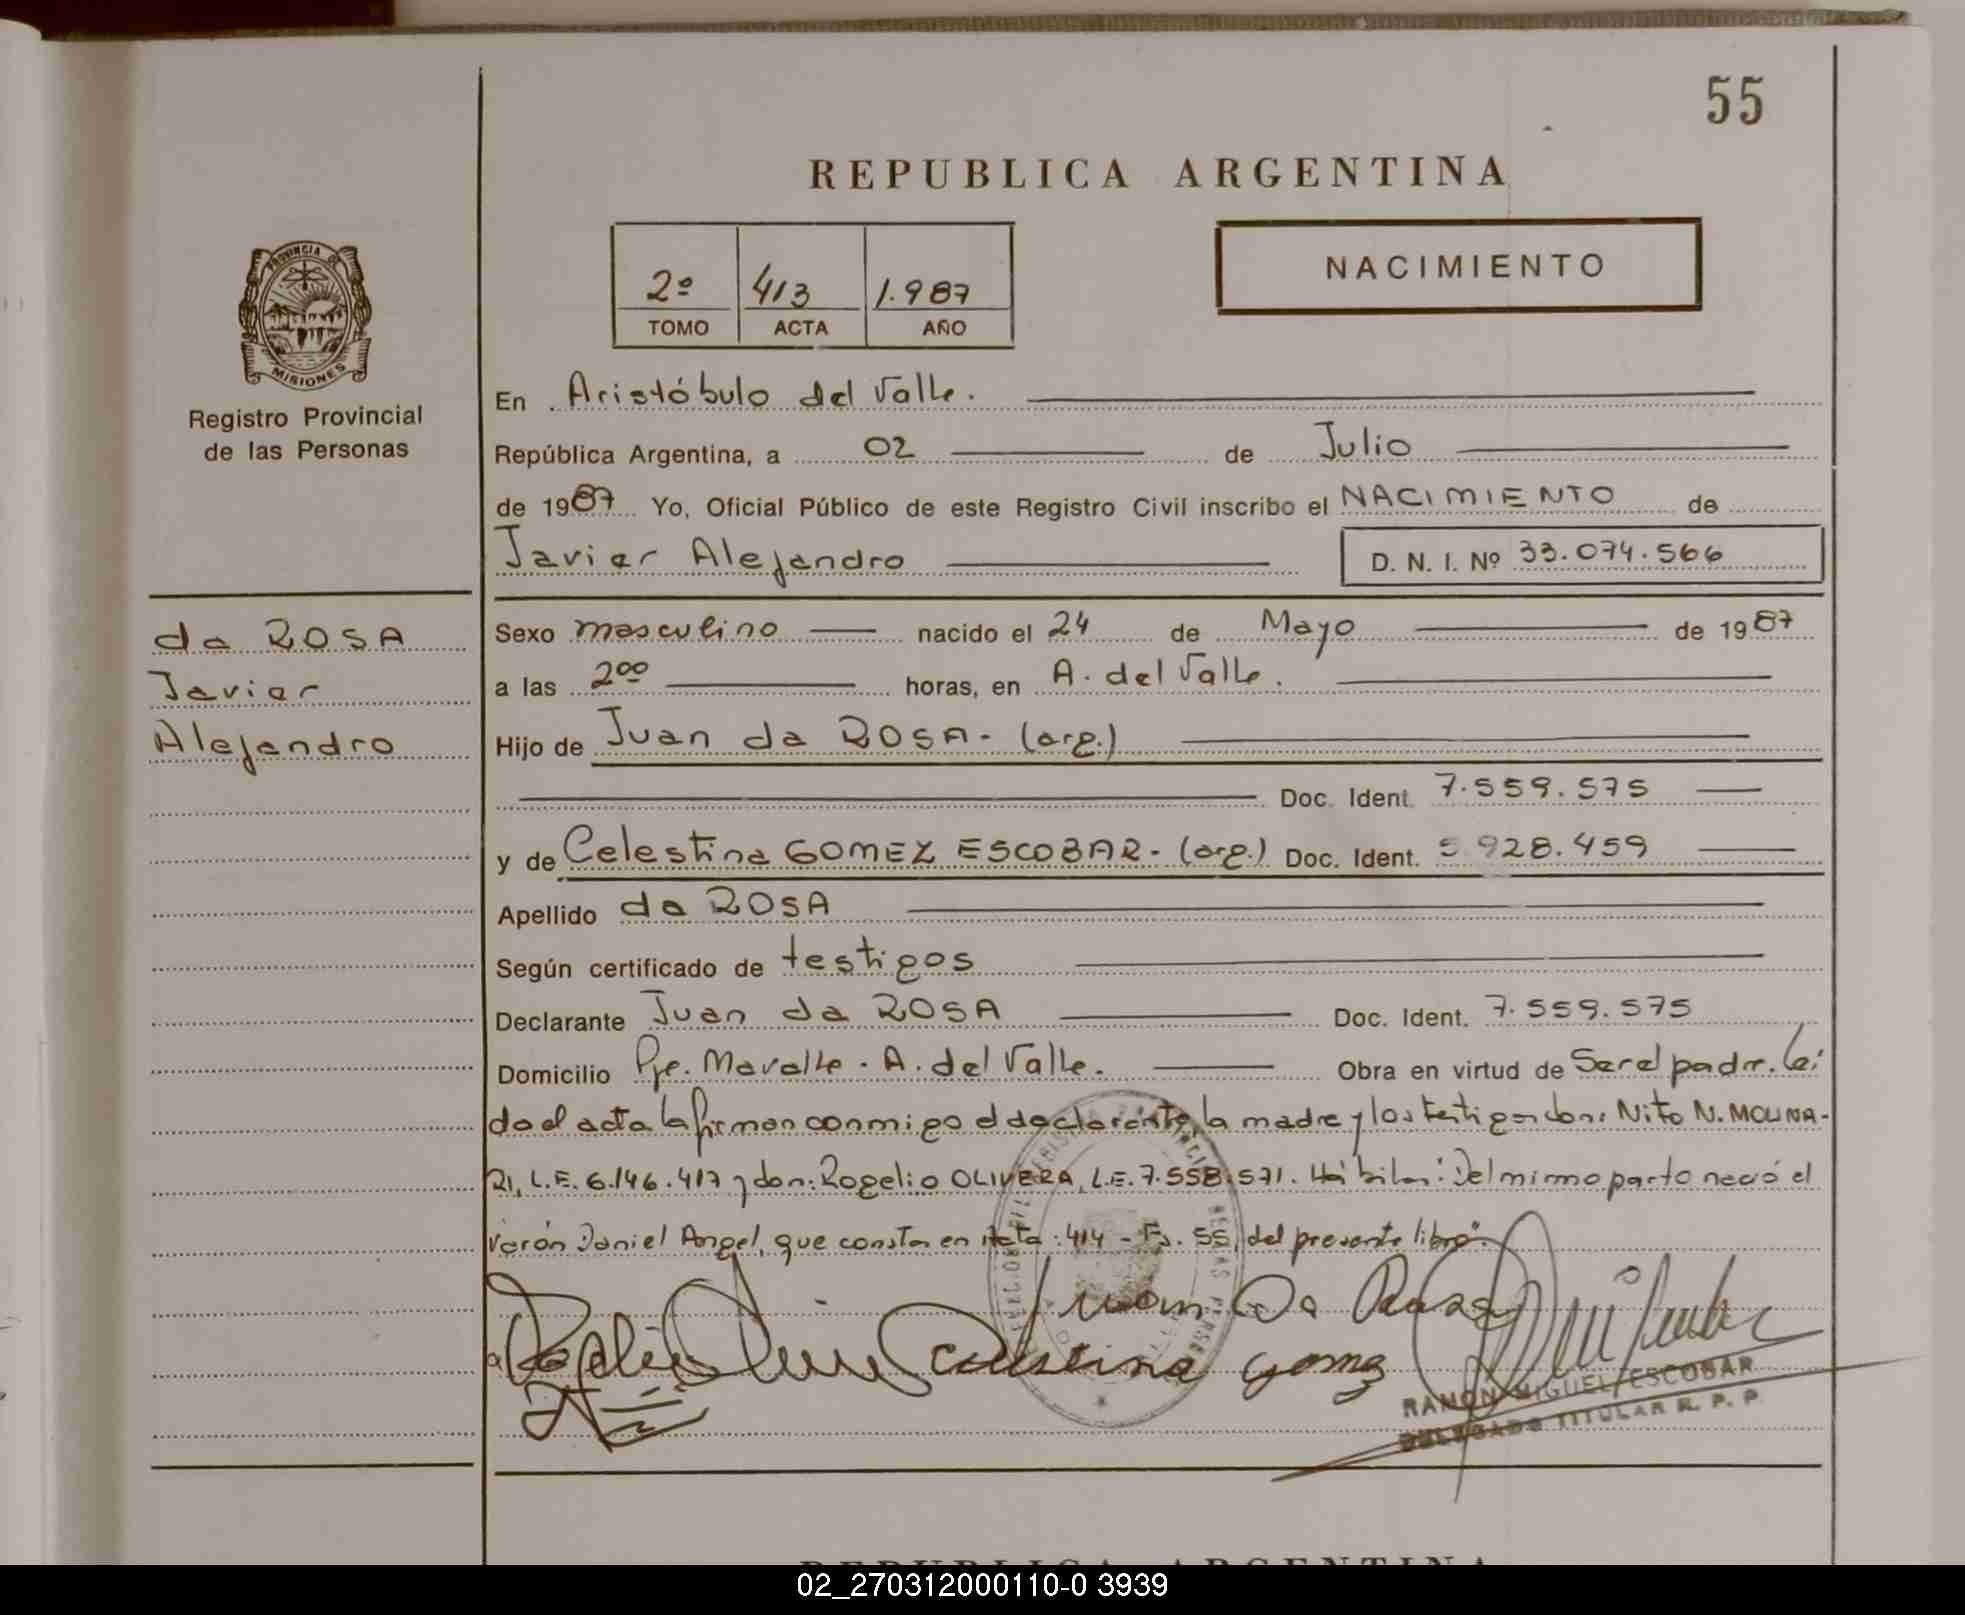 55
REPUBLICA ARGENTINA
2º 413 1.987
TOMO ACTA AÑO
NACIMIENTO
PROVINCIA DE
MISIONES
Registro Provincial
de las Personas
En Aristóbulo del Valle.
República Argentina, a 02 de Julio
de 1987 Yo, Oficial Público de este Registro Civil inscribo el NACIMIENTO de
Javier Alejandro D. N. I. Nº 33.074.566
da ROSA
Javier
Alejandro
Sexo masculino nacido el 24 de Mayo de 1987
a las 2ºº horas, en A. del Valle.
Hijo de Juan da ROSA- (arg.)
Doc. Ident. 7.559.575
y de Celestina GOMEZ ESCOBAR- (arg.) Doc. Ident. 5.928.459
Apellido da ROSA
Según certificado de testigos
Declarante Juan da ROSA Doc. Ident. 7.559.575
Domicilio Pje. Mavalle - A. del Valle. Obra en virtud de Ser el padre. Leí
da el acta la firman conmigo el declarante, la madre y los testigos don: Nito N. MOLINA-
RI, L.E. 6.146.417 y don: Rogelio OLIVERA, L.E. 7.558.571. Hábiles: Del mismo parto nació el
varón Daniel Angel, que consta en Acta: 414 - Fs. 55, del presente libro".
Juan Da Rosa
Celestina gomez
RAMON MIGUEL ESCOBAR
DELEGADO TITULAR R. P. P.
REPUBLICA ARGENTINA
02_270312000110-0 3939